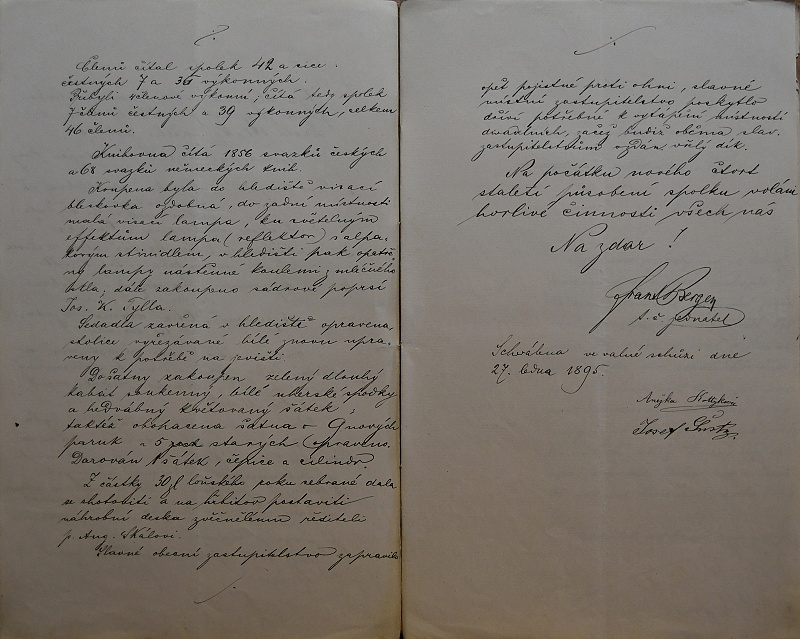 Členů čítal spolek 42 a sice
čestných 7 a 35 výkonných.
Přibyli 4 členové výkonní; čítá tedy spolek
7 členů čestných a 39 výkonných, celkem
46 členů.
Knihovna čítá 1856 svazků českých
a 68 svazků německých knih.
Koupena byla do hlediště visací
bleskovka ozdobná, do zadní místnosti
malá visací lampa, ku světelným
effektům lampa (reflektor) s alpa-
kovým stínidlem, v hledišti pak opatře-
ny lampy nástěnné koulemi z mléčného
skla; dále zakoupeno sádrové poprsí
Jos. K. Tylla.
Sedadla zavřená v hledišti opravena
stolice vyřezávané bílé znovu upra-
veny k potřebě na jevišti.
Do šatny zakoupen zelený dlouhý
kabát soukenný, bílé uherské spodky
a hedvábný květovaný šátek;
taktéž obohacena šatna o 9 nových
paruk a 5 starých opraveno.
Darován 1 šátek, čepice a cilindr.
Z částky 30 zl loňského roku sebrané dala
se zhotoviti a na hřbitov postaviti
náhrobní deska zvěčnělému řediteli
p. Aug. Skálovi.
Slavné obecní zastupitelstvo zapravilo
opět pojistné proti ohni, slavné
místní zastupitelstvo poskytlo
dříví potřebné k vytápění místností
divadelních, začež budiž oběma slav.
zastupitelstvům vzdán vřelý dík.
Na počátku nového čtvrt
staletí působení spolku volám
horlivé činnosti všech nás
Na zdar!
Frant Bergen
t. č. jednatel
Schválena ve valné schůzi dne
27. ledna 1895.
Josef Šustr.